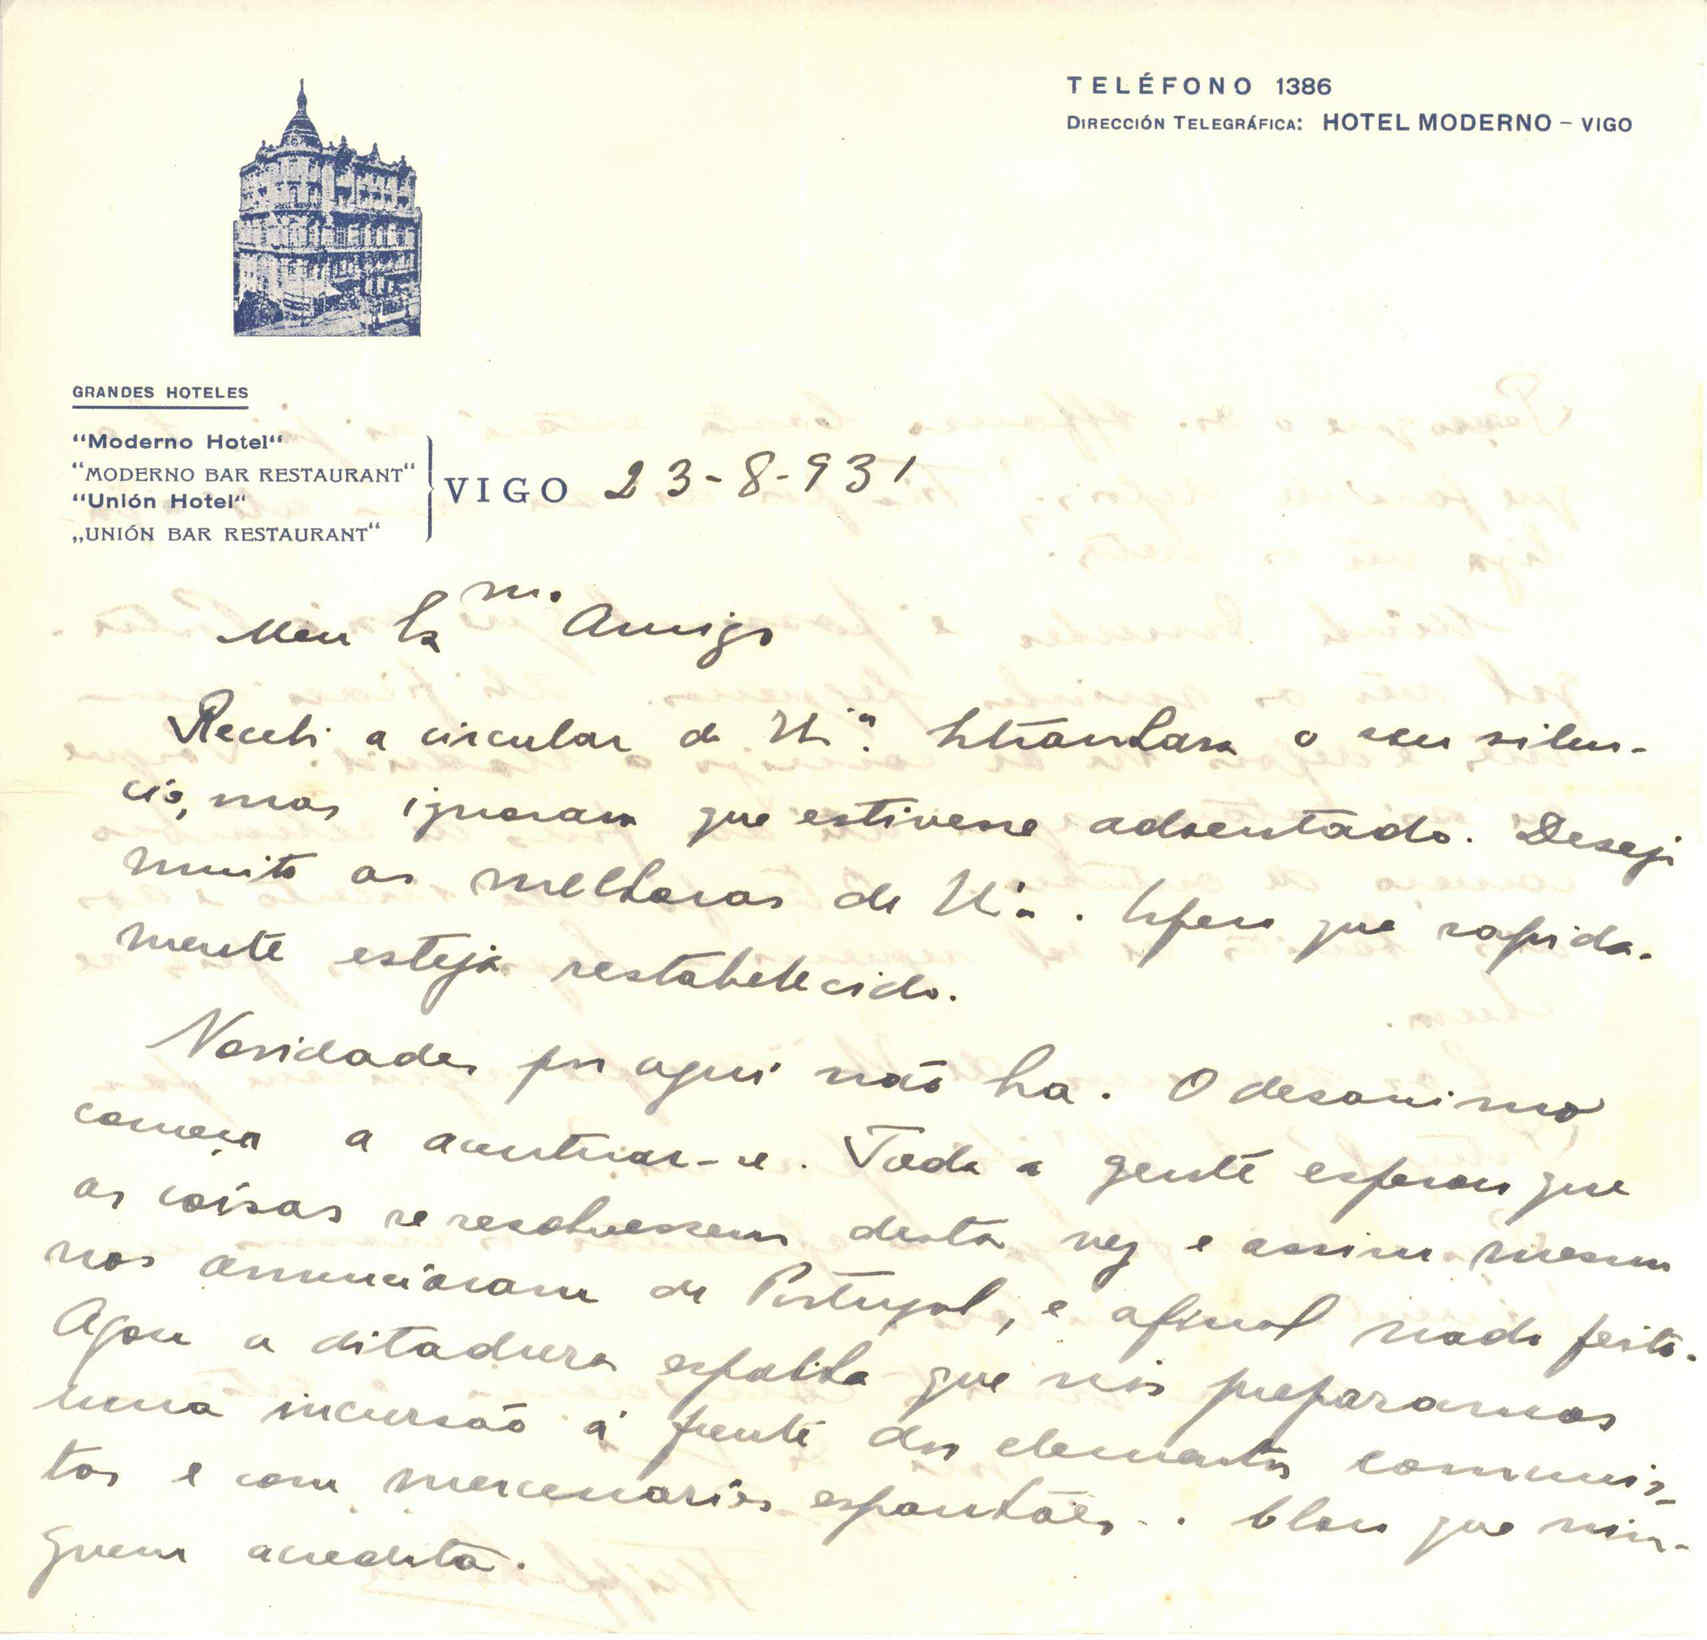 TELÉFONO 1386
DIRECCIÓN TELEGRÁFICA: HOTEL MODERNO – VIGO
GRANDES HOTELES
"Moderno Hotel"
"MODERNO BAR RESTAURANT"
"Unión Hotel"
„UNIÓN BAR RESTAURANT"
VIGO 23-8-931
Meu Ex.mo Amigo
Recebi a circular de V. Extranhara o seu silen-
cio, mas ignorava que estivesse adoentado. Desejo
muito as melhoras de V. Espero que rapida-
mente esteja restabelecido.
Novidades por aqui não ha. O desanimo
começa a acentuar-se. Toda a gente esperou que
as coisas se resolvessem desta vez e assim mesmo
nos anunciaram de Portugal, e afinal nada feito.
Agora a ditadura espalha que nós preparamos
uma incursão á frente dos elementos comunis-
tas e com mercenarios espanhóes.. Claro que nin-
guem acredita.